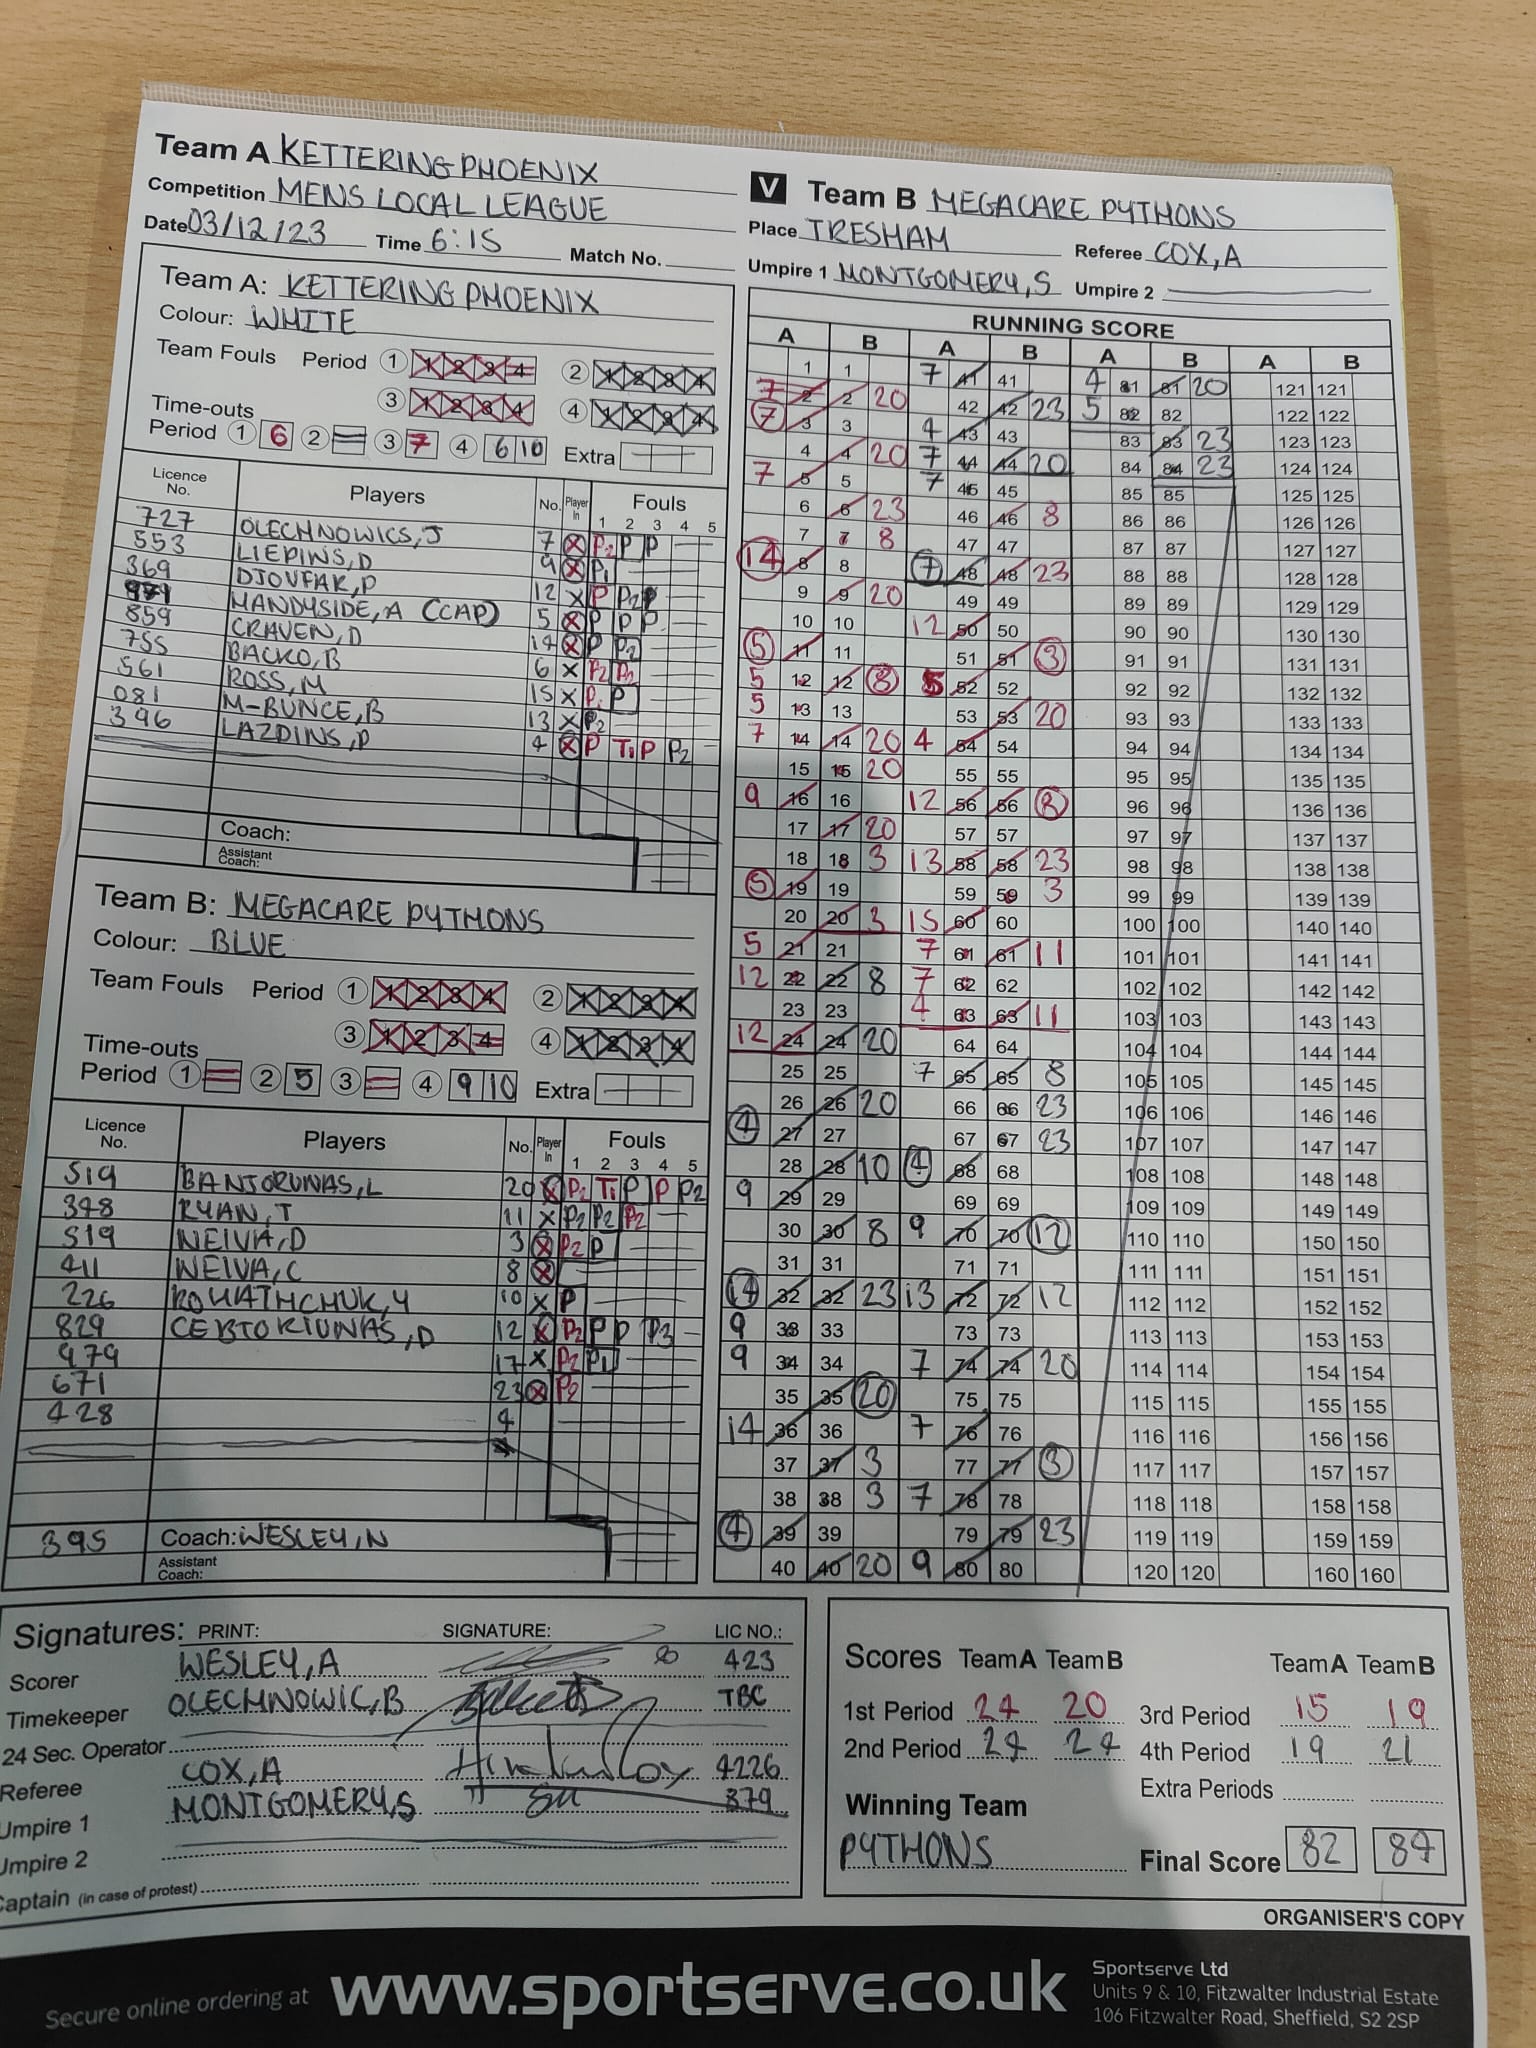 Team A KETTERING PHOENIX
V Team B MEGACARE PYTHONS
Competition MENS LOCAL LEAGUE
Place TRESHAM Referee COX, A
Date 03/12/23 Time 6:15 Match No.
Umpire 1 MONTGOMERY, S Umpire 2
Team A: KETTERING PHOENIX
Colour: WHITE
Team Fouls Period 1 1 2 3 4 2 1 2 3 4
3 1 2 3 4 4 1 2 3 4
Time-outs
Period 1 6 2 3 7 4 6 10 Extra
Licence No. Players No. Player In Fouls
1 2 3 4 5
727 OLECHNOWICS, J 7 X P2 P P
553 LIEPINS, D 9 X P1
369 DJOUFAR, P 12 X P P2 P
HANDYSIDE, A (CAP) 5 X P P P
859 CRAVEN, D 14 X P P2
755 BACKO, B 6 X P2 P2
561 ROSS, M 15 X P1 P
081 M-BUNCE, B 13 X P2
396 LAZDINS, D 4 X P T1 P P2
Coach:
Assistant Coach:
Team B: MEGACARE PYTHONS
Colour: BLUE
Team Fouls Period 1 1 2 3 4 2 1 2 3 4
3 1 2 3 4 4 1 2 3 4
Time-outs
Period 1 2 5 3 4 9 10 Extra
Licence No. Players No. Player In Fouls
1 2 3 4 5
519 BANJORUNAS, L 20 X P2 T1 P P P2
348 RYAN, T 11 X P2 P2 P2
519 NEIVA, D 3 X P2 P
411 NEIVA, C 8 X
226 10 X P
829 12 X P2 P P P3
979 17 X P2 P1
671 23 X P2
428 4
395 Coach: WESLEY, N
Assistant Coach:
RUNNING SCORE
A B A B A B A B
1 1 7 41 41 4 81 81 20 121 121
7 2 2 20 42 42 23 5 82 82 122 122
7 3 3 4 43 43 83 83 23 123 123
4 4 20 7 44 44 20 84 84 23 124 124
7 5 5 7 45 45 85 85 125 125
6 6 23 46 46 8 86 86 126 126
7 7 8 47 47 87 87 127 127
14 8 8 7 48 48 23 88 88 128 128
9 9 20 49 49 89 89 129 129
10 10 12 50 50 90 90 130 130
5 11 11 51 51 3 91 91 131 131
5 12 12 8 5 52 52 92 92 132 132
5 13 13 53 53 20 93 93 133 133
7 14 14 20 4 54 54 94 94 134 134
15 15 20 55 55 95 95 135 135
9 16 16 12 56 56 8 96 96 136 136
17 17 20 57 57 97 97 137 137
18 18 3 13 58 58 23 98 98 138 138
5 19 19 59 59 3 99 99 139 139
20 20 3 15 60 60 100 100 140 140
5 21 21 7 61 61 11 101 101 141 141
12 22 22 8 7 62 62 102 102 142 142
23 23 4 63 63 11 103 103 143 143
12 24 24 20 64 64 104 104 144 144
25 25 7 65 65 8 105 105 145 145
26 26 20 66 66 23 106 106 146 146
4 27 27 67 67 23 107 107 147 147
28 28 10 4 68 68 108 108 148 148
9 29 29 69 69 109 109 149 149
30 30 8 9 70 70 12 110 110 150 150
31 31 71 71 111 111 151 151
14 32 32 23 13 72 72 12 112 112 152 152
9 33 33 73 73 113 113 153 153
9 34 34 7 74 74 20 114 114 154 154
35 35 20 75 75 115 115 155 155
14 36 36 7 76 76 116 116 156 156
37 37 3 77 77 3 117 117 157 157
38 38 3 7 78 78 118 118 158 158
4 39 39 79 79 23 119 119 159 159
40 40 20 9 80 80 120 120 160 160
Signatures: PRINT: SIGNATURE: LIC NO.:
Scorer WESLEY, A 423
Timekeeper OLECHNOWIC, B TBC
24 Sec. Operator
Referee COX, A 4226
Umpire 1 MONTGOMERY, S 379
Umpire 2
Captain (in case of protest)
Scores Team A Team B Team A Team B
1st Period 24 20 3rd Period 15 19
2nd Period 24 24 4th Period 19 21
Extra Periods
Winning Team
PYTHONS Final Score 82 84
ORGANISER'S COPY
Secure online ordering at www.sportserve.co.uk
Sportserve Ltd
Units 9 & 10, Fitzwalter Industrial Estate
106 Fitzwalter Road, Sheffield, S2 2SP